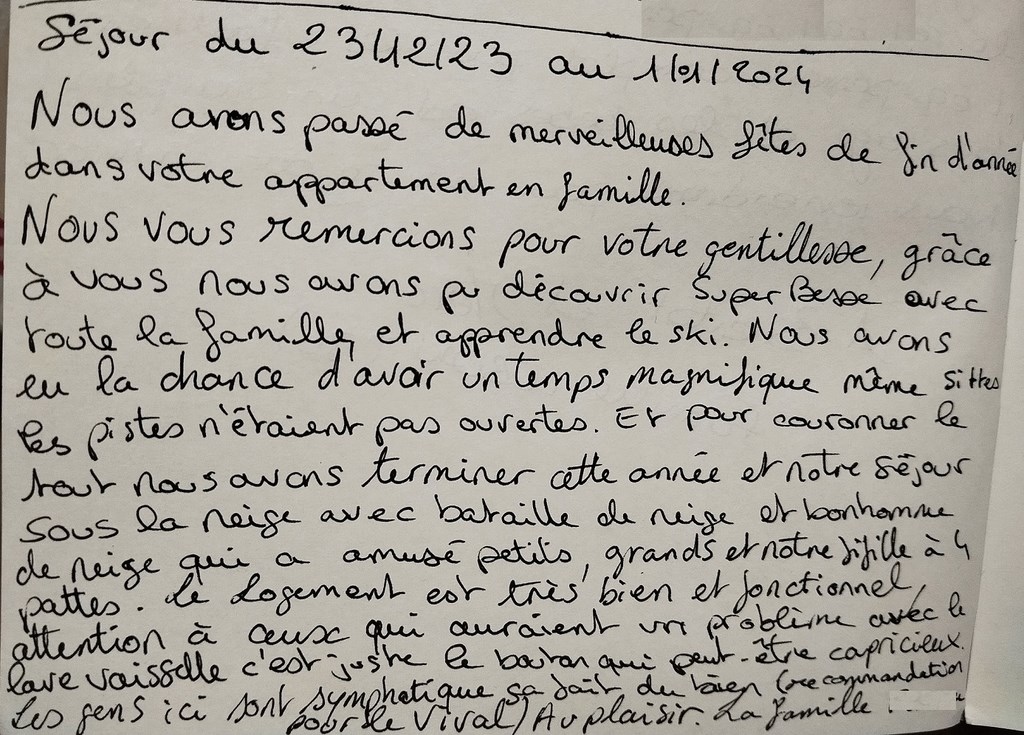 Séjour du 23/12/23 au 1/01/2024
Nous avons passé de merveilleuses fêtes de fin d'année
dans votre appartement en famille.
Nous vous remercions pour votre gentillesse, grâce
à vous nous avons pu découvrir Super Besse avec
toute la famille, et apprendre le ski. Nous avons
eu la chance d'avoir un temps magnifique même si ttes
les pistes n'étaient pas ouvertes. Et pour couronner le
tout nous avons terminer cette année et notre séjour
sous la neige avec bataille de neige et bonhomme
de neige qui a amusé petits, grands et notre fifille à 4
pattes. Le logement est très bien et fonctionnel,
attention à ceux qui auraient un problème avec le
lave vaisselle c'est juste le bouton qui peut-être capricieux.
Les gens ici sont symphatique sa fait du bien (recommandation
pour le Vival) Au plaisir. La famille